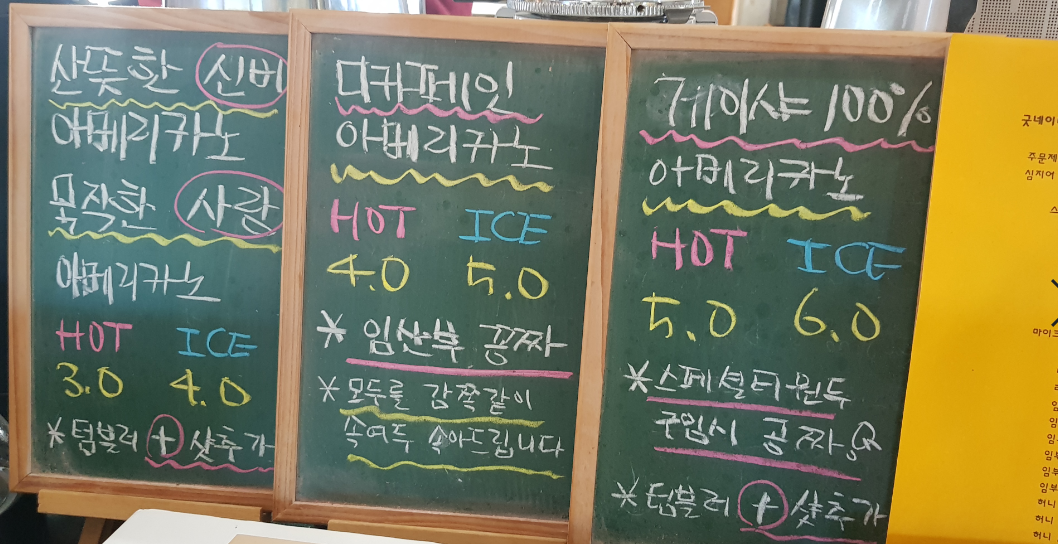 산뜻한 신비
아메리카노
묵직한 사랑
아메리카노
HOT ICE
3.0 4.0
* 텀블러 + 샷추가
디카페인
아메리카노
HOT ICE
4.0 5.0
* 임산부 공짜
* 모두를 감쪽같이
속여두 속아드립니다
게이샤 100%
아메리카노
HOT ICE
5.0 6.0
* 스페셜티 원두
구입시 공짜
* 텀블러 + 샷추가
굿네이
주문제
심지어
스
마이크
임
임
임부
임부
임부
허니
허니
허니